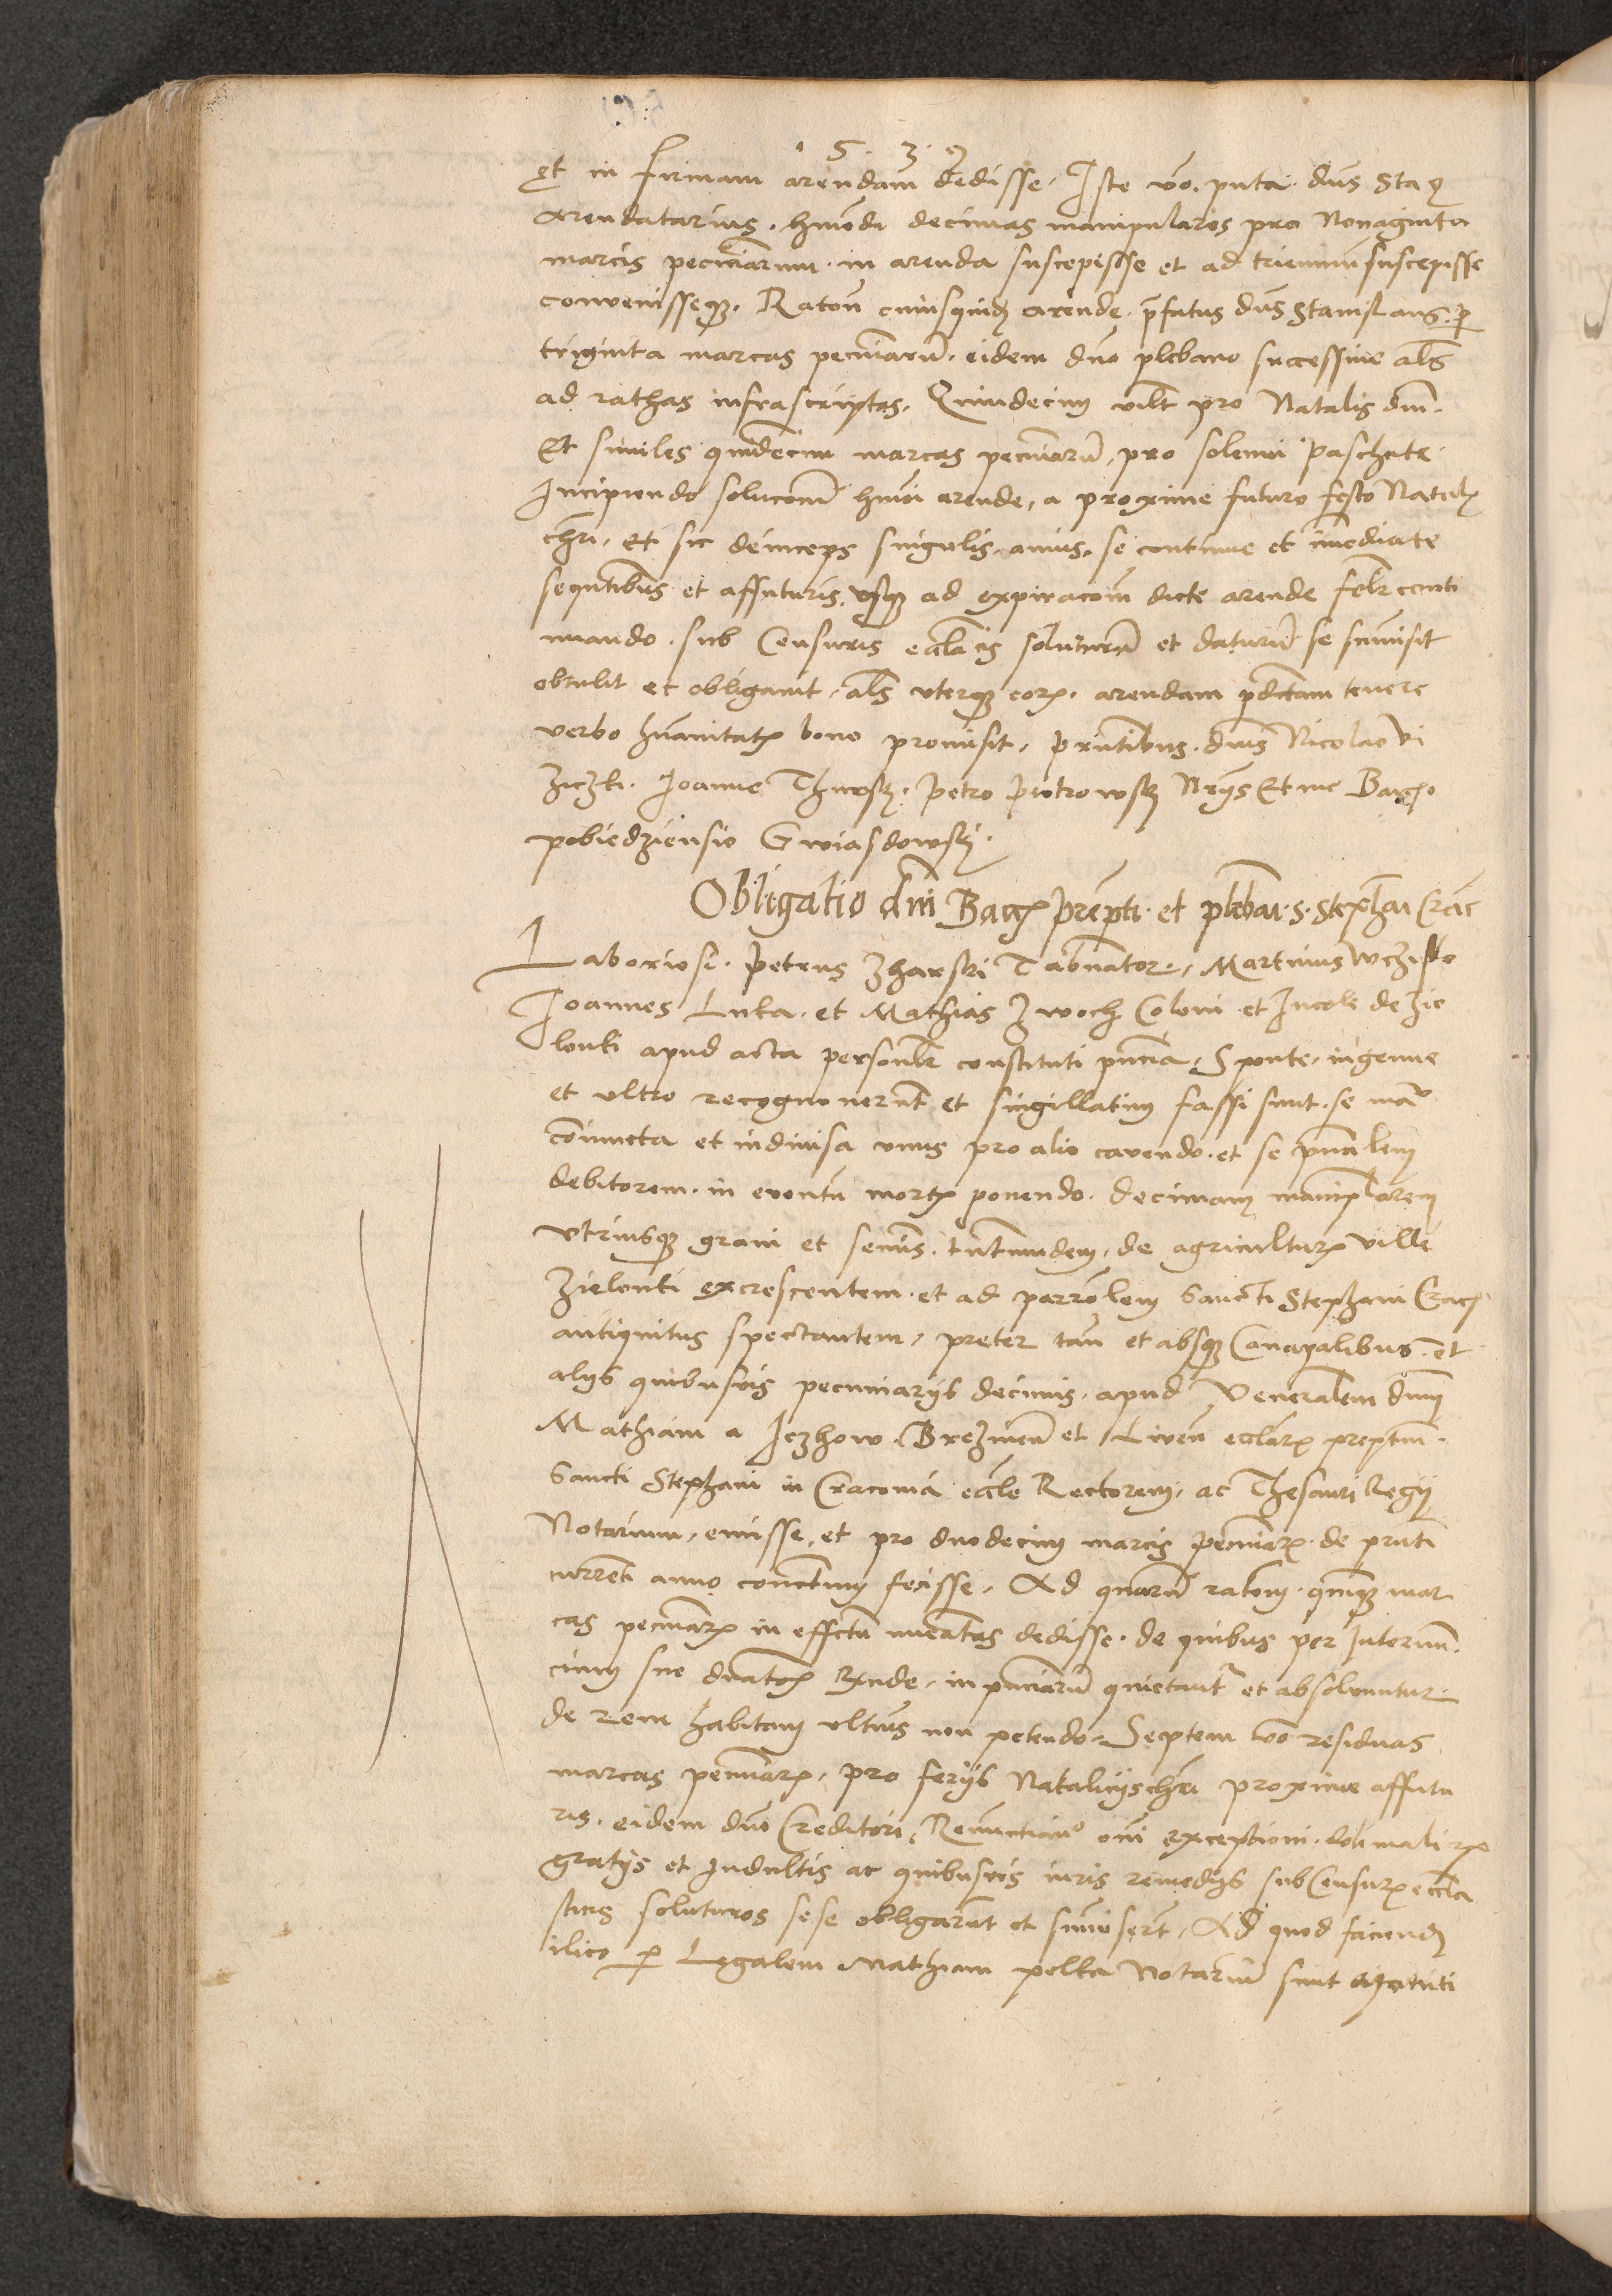 1 5 3 9
et in firmam arendam dedisse. Iste vo. puta. dns Sta
arendatarius. hmodi decimas manipulares pro Nonaginta
marcis pecuniarum. in arenda suscepisse et ad triennium suscepisse
convenisseqz. Ratone cuiusquidem arende. prefatus dns Stanislaus. per
triginta marcas pecuniarum. eidem dno plebano successive als
ad rathas infrascriptas. Quindecim vidlt pro Natalis dni.
Et similes quindecim marcas pecuniarum, pro solemni paschate
Incipiendo solucionem hmoi arende, a proxime futuro festo Natalis
chri, et sic deinceps singulis. annis, se continue et immediate
sequentibus et affuturis, usqz ad expiracionem dicte arende feliciter conti
nuando. sub Censuris ecclacis soluturum et daturum se summisit
obtulit et obligavit, als uterqz eorum. arendam pdictam tenere
verbo humanitatis bono promisit, prntibus. dnis Nicolao Vi
Ioanne petro piotrowsky Et me Barth.
pobiedziensio Gwiasdowsky.
Obligatio dni prepti. et plebani. S. Stephani Crac
Laboriosi. petrus Zharski Tabernator, Martinus
Ioannes Luka. et Mathias Zwoch Coloni et Incole de Zie
lonki apud acta personaliter constituti presencia, Sponte, ingenue
et ultro recognoverunt et singillatim fassi sunt. se manu
coniuncta et indivisa unus pro alio cavendo. et se principalem
debitorem. in eventum mortis ponendo. decimam manipularem
utriusqz grani et seminis. tantummodem. de agriculturis ville
Zielonki excrescentem. et ad parrochialem Sancti Stephani Crac.
antiquitus spectantem, preter tamen et absqz Canapalibus et
alijs quibusvis pecuniarijs decimis. apud Venerabilem dnum
Mathiam a Iezhow. et ecclarum preptum.
Sancti Stephani in Cracovia eccle Rectorem, ac Thesauri Regij
Notarium, emisse, et pro duodecim marcis pecuniarum. de prnti
currenti anno contractum fecisse, Ad quarum rationem. quinqz mar
cas pecuniarum in effectu numeratas dedisse. de quibus per Internun
cium sue inpunciarum quietantur et absolvuntur
de rem habitam ultius non petendo. Septem vo residuas
marcas pecuniarum, pro ferijs Natalicijs chri proxime affutu
ris. eidem dno Creditori, omni exceptioni. doli mali
gratijs et Indultis ac quibusvis iuris remedijs sub Censuris eccla
sticis soluturos sese obligarunt et summiserunt, Ad quod faciend
ilico per Legalem Mathiam pelka Notarium sunt